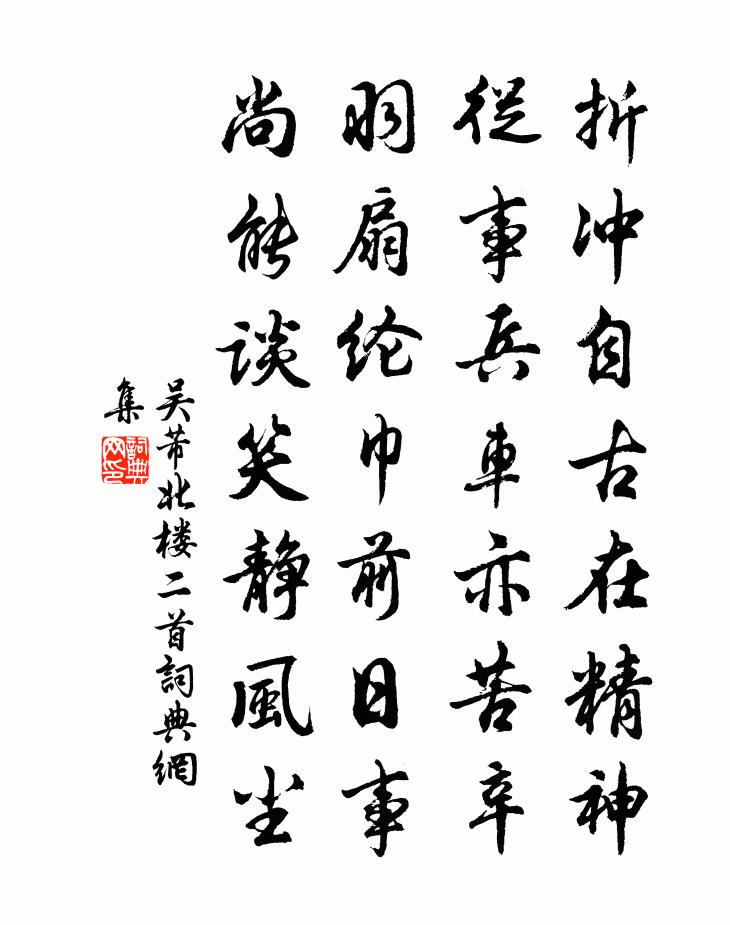 折冲自古在精神
從事兵車亦苦辛
羽扇纶巾前日事
尚能谈笑静風尘
吴芾北楼二首詞典網
集
詞典网印